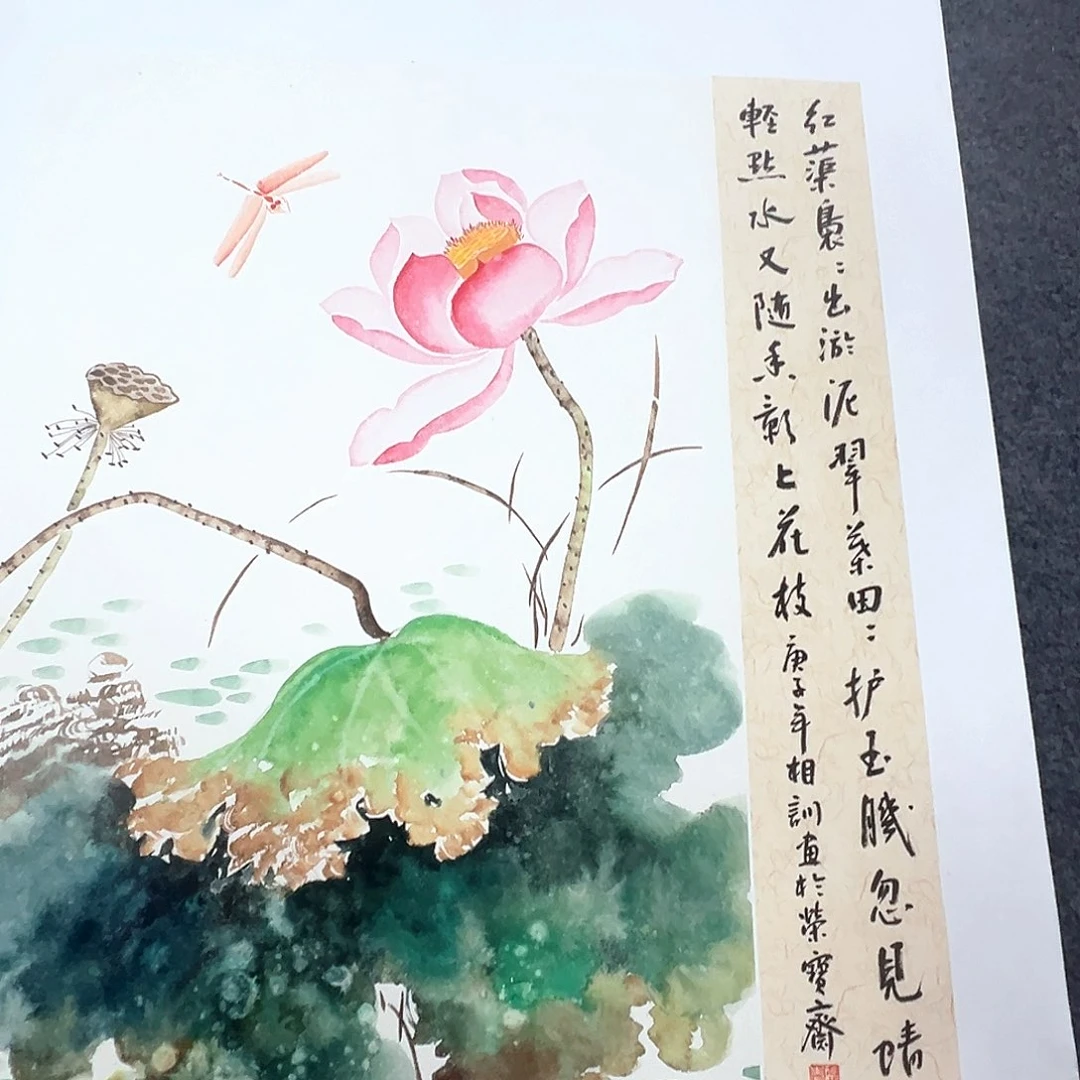 红蕖裊〻出淤泥翠葉田〻护玉忽見蜻
輕點水又随香影上花枝庚子年相訓畫於榮寶齋